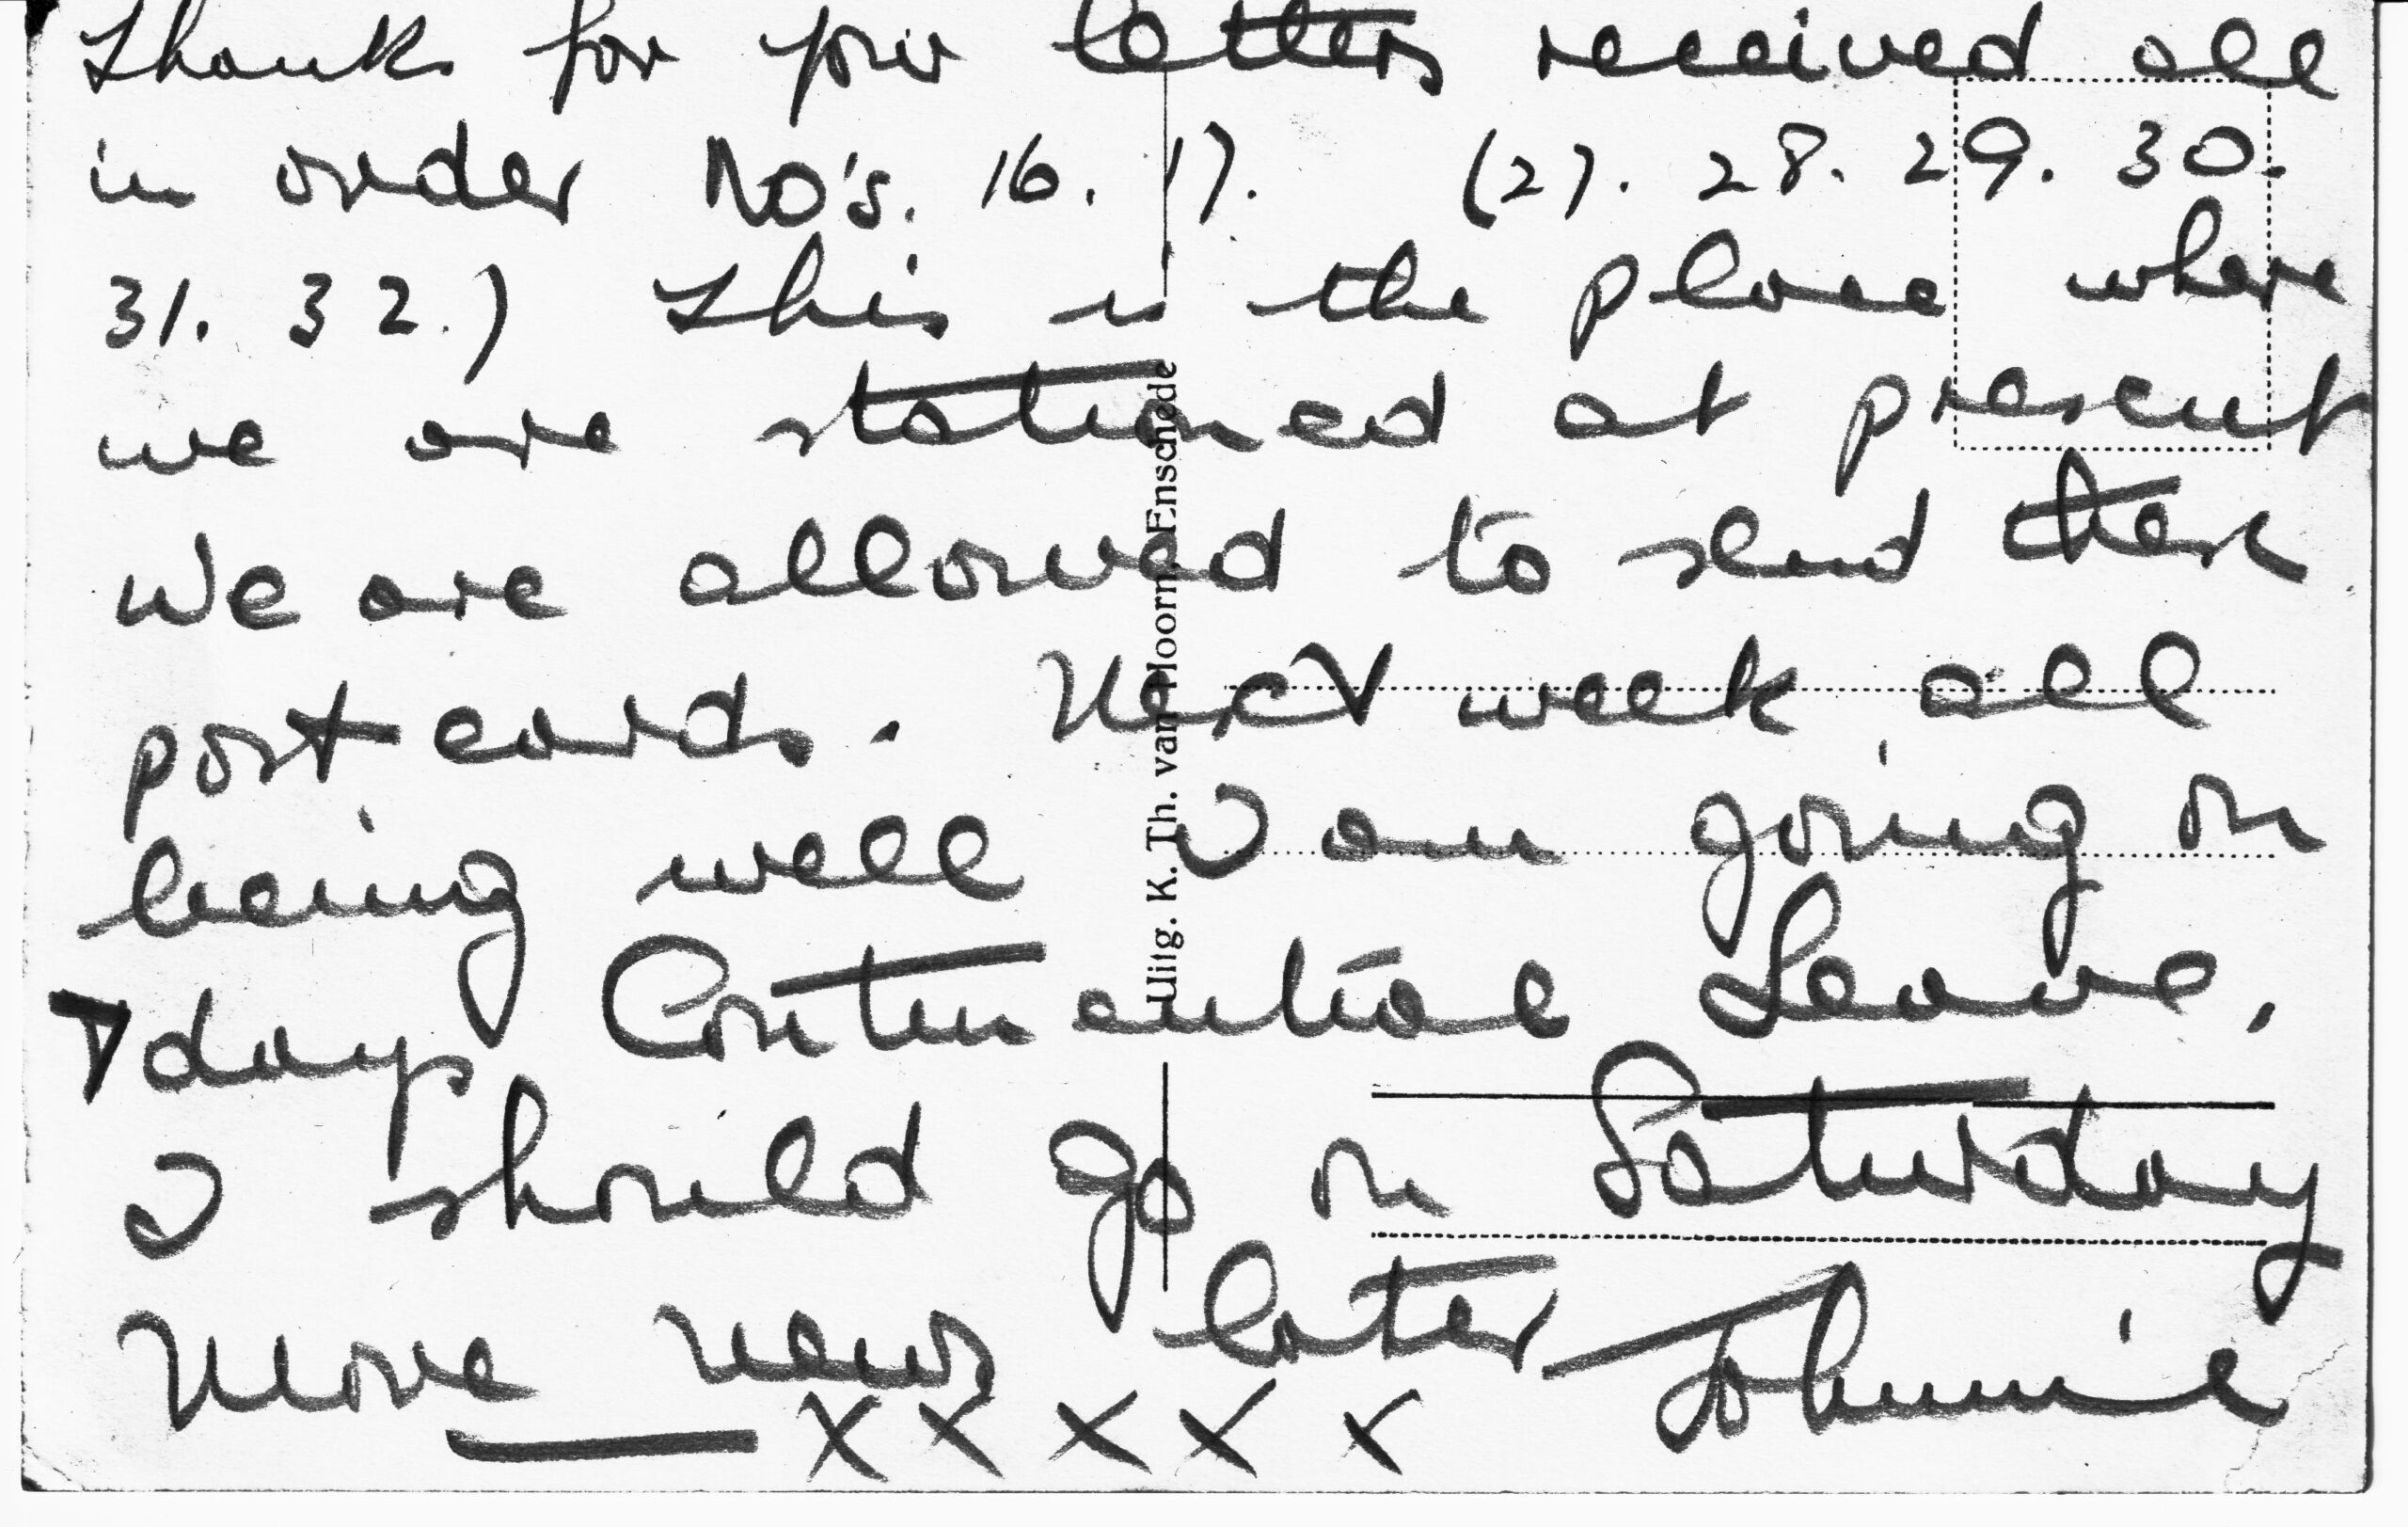 Thanks for your letters received all
in order No's. 16. 17. (27. 28. 29. 30.
31. 32.) This is the place where
we are stationed at present
We are allowed to send these
post cards. Next week all
being well I am going on
7 days Continential Leave,
I should go on Saturday
More news later Johnnie
X X X X X
Uitg. K. Th. van Hoorn, Enschede